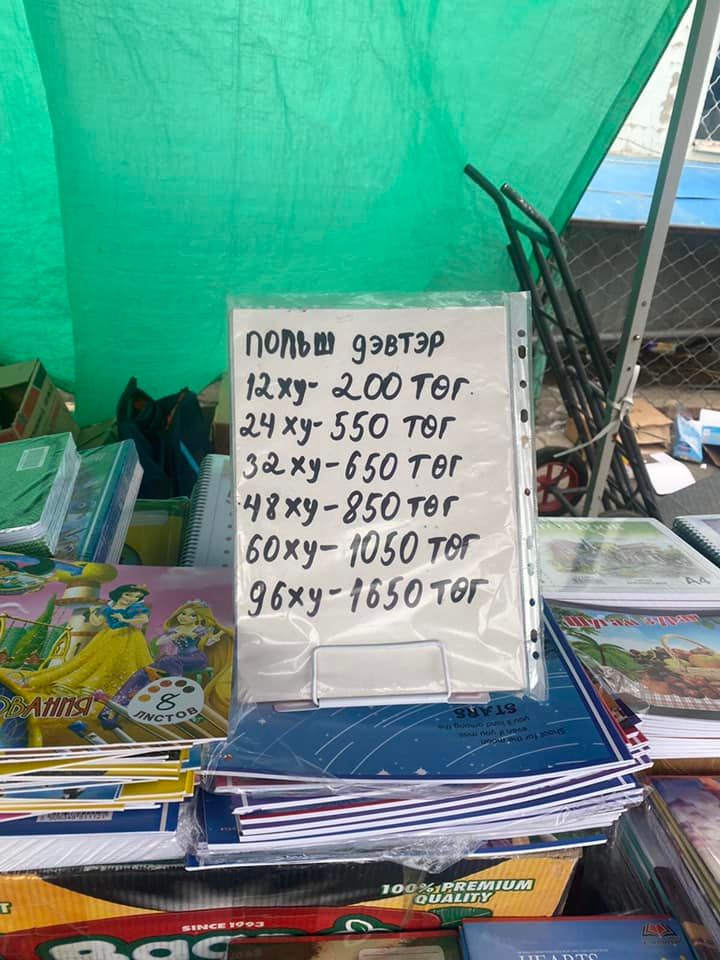 ПОЛЬШ ДЭВТЭР
12ХУ- 200 ТӨГ.
24ХУ-550 ТӨГ
32ХУ-650 ТӨГ
48ХУ-850 ТӨГ
60ХУ- 1050 ТӨГ
96ХУ-1650 ТӨГ
A4
8
ЛИСТОВ
STARS
Shoot for the moon
even if you miss
you'll land among the
100% PREMIUM
QUALITY
SINCE 1993
HEARTS